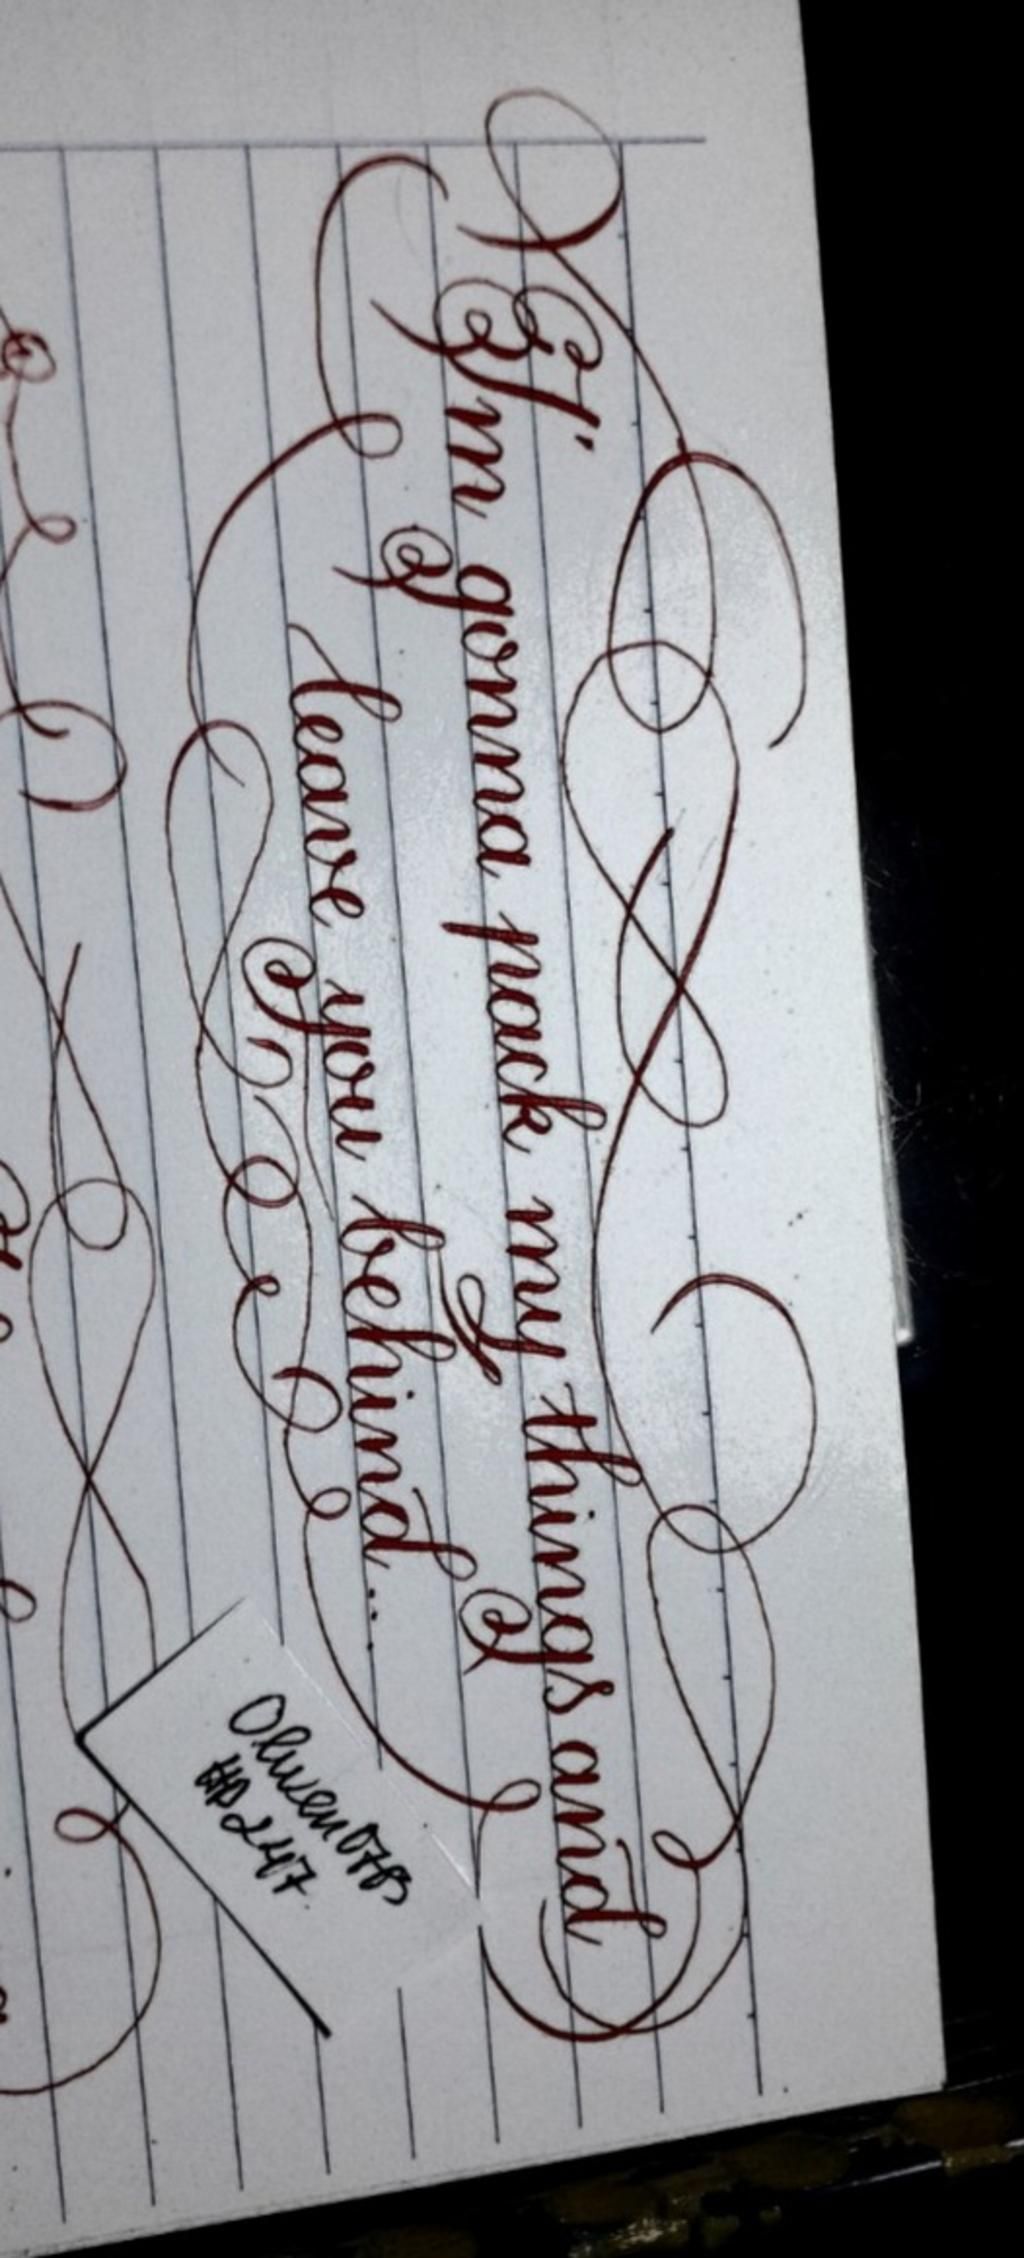 I'm gonna pack my things and
leave you behind...
Olwen0783
#D247